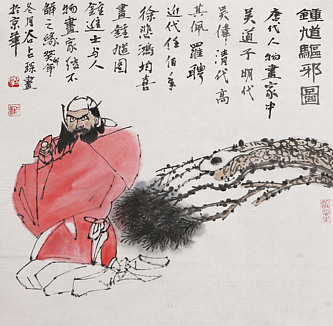 鍾馗驅邪圖
唐代人物畫家中
吴道子明代
吴偉清代高
其佩羅聘
近代任伯年
徐悲鴻均喜
畫鍾馗圖
鍾進士与人
物畫家结不
解之緣癸
冬月谷占 畫
於京華